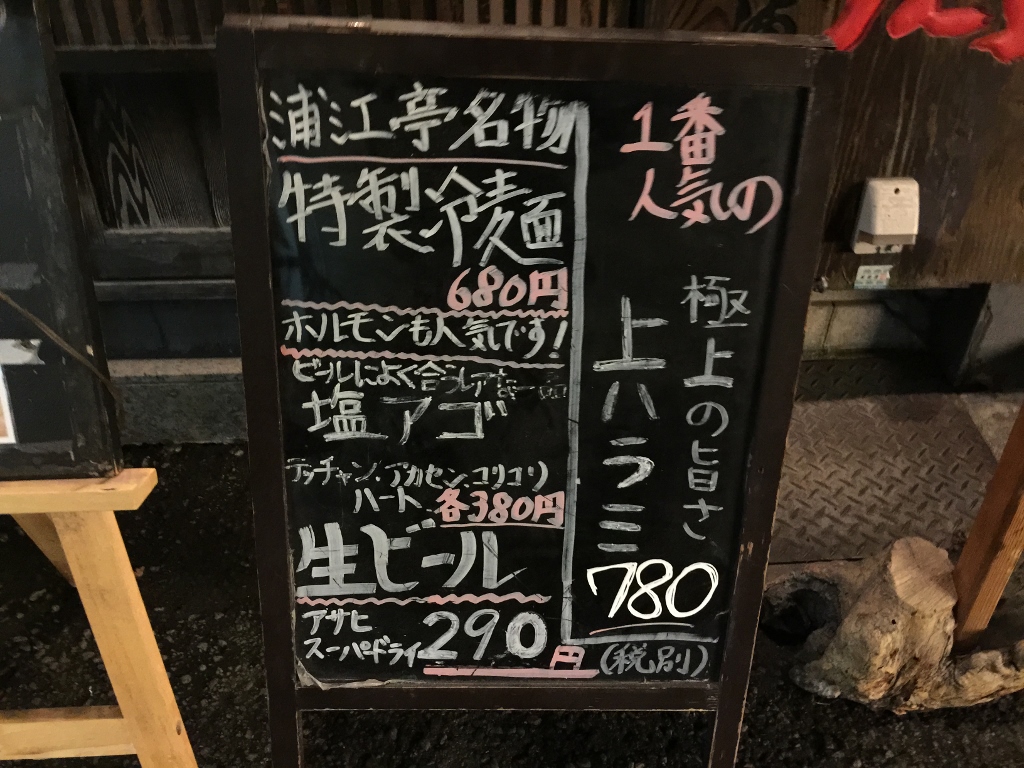 1番
人気の
極上の旨さ
上ハラミ
780
(税別)
浦江亭名物
特製冷麺
680円
ホルモンも人気です!
ビールによく合うレアな一品
塩アゴ
テッチャン、アカセン、コリコリ
ハート 各380円
生ビール
アサヒ
スーパードライ 290円